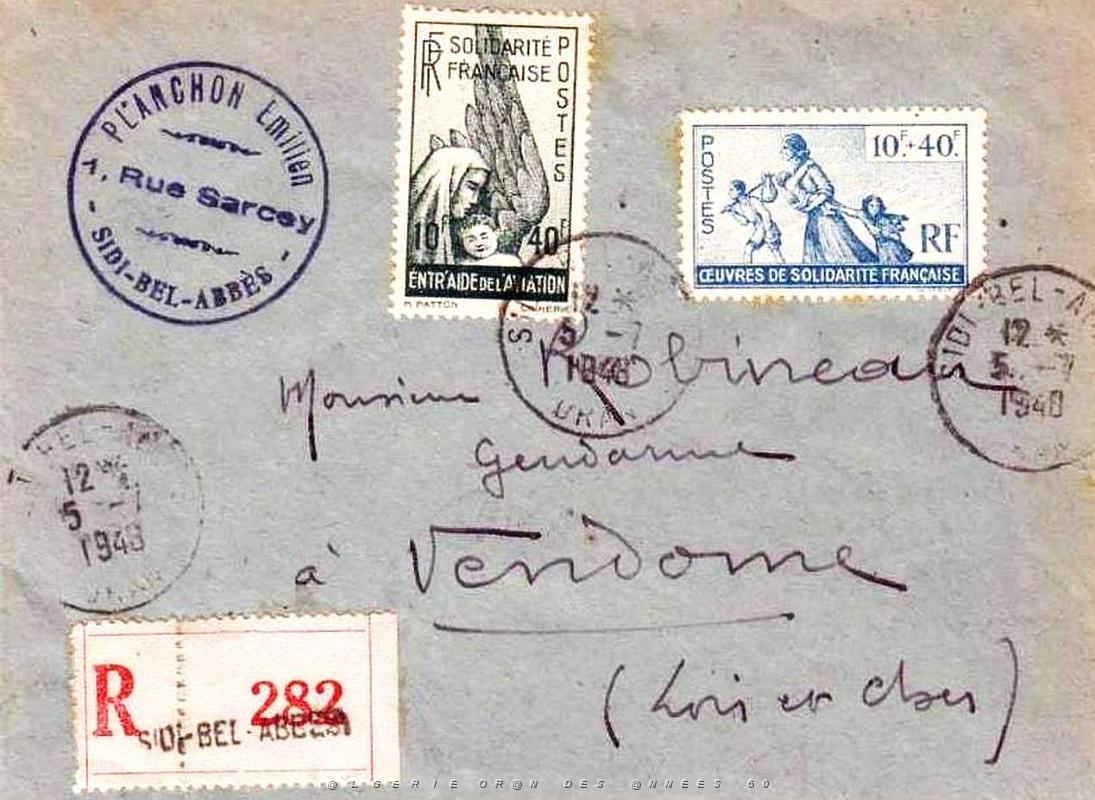 PLANCHON Emilien
1, Rue Sarcey
- SIDI-BEL-ABBÈS -
RF SOLIDARITÉ
FRANÇAISE
POSTES
10F 40F
ENTR'AIDE DE L'AVIATION
R. PATTON
POSTES
10F.+40F.
RF
ŒUVRES DE SOLIDARITÉ FRANÇAISE
12 *
5 -7
1948
ORAN
SIDI-BEL-A
12 *
5 -7
1948
Monsieur Robineau
Gendarme
à Vendome
(Loir et Cher)
BEL-
12
5 -7
1948
ORAN
R 282
SIDI-BEL-ABBES
@LGERIE OR@N DES @NNEES 50